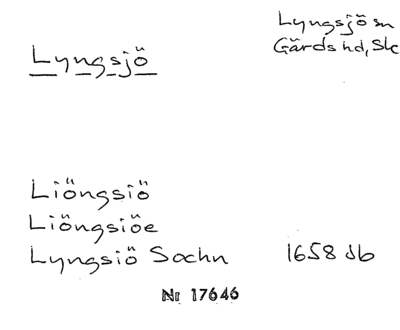 Lyngsjö sn
Gärds hd, Sk
Lyngsjö
Liöngsiö
Liöngsiöe
Lyngsiö Sochn 1658 db
Nr 17646